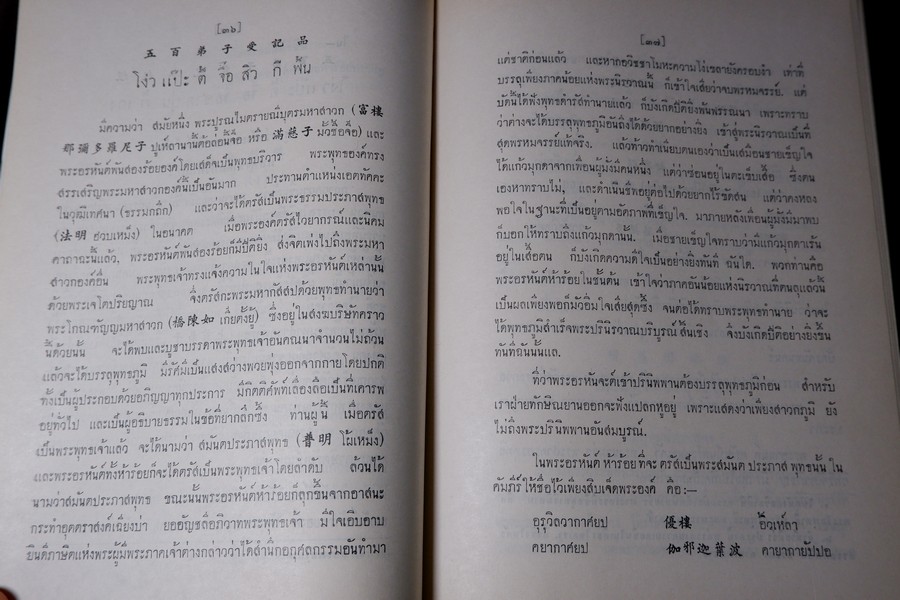 [๓๖]
五百弟子受記品
โง่ว แป๊ะ ตี๋ จื้อ สิ่ว กี่ พิ้น
มีความว่า สมัยหนึ่ง พระปูรณไมตรายณีบุตรมหาสาวก (富樓
那彌多羅尼子 หรือ 滿慈子 และ
พระอรหันต์พันสองร้อยองค์โดยเสด็จเป็นพุทธบริวาร พระพุทธองค์ทรง
สรรเสริญพระมหาสาวกองค์นั้นเป็นอันมาก ประทานตำแหน่งเอตทัคคะ
ในวุฒิเทศนา (ธรรมกถึก) และว่าจะได้ตรัสเป็นพระธรรมประภาสพุทธ
(法明 ฮวบเหม็ง) ในอนาคต เมื่อพระองค์ตรัสไวยากรณ์และนิคม
คาถาฉะนี้แล้ว, พระอรหันต์พันสองร้อยก็มีปีติยิ่ง ส่งจิตเพ่งไปถึงพระมหา
สาวกองค์อื่น พระพุทธเจ้าทรงแจ้งความในใจแห่งพระอรหันต์เหล่านั้น
ด้วยพระเจโตปริยญาณ จึงตรัสกะพระมหากัสสปด้วยพุทธทำนายว่า
พระโกณฑัญญมหาสาวก (憍陳如 ซึ่งอยู่ในสงฆบริษัทคราว
นี้ด้วยนั้น จะได้พบและบูชาบรรดาพระพุทธเจ้าอันคณนาจำนวนไม่ถ้วน
แล้วจะได้บรรลุพุทธภูมิ มีรัศมีเป็นแสงสว่างพวยพุ่งออกจากกายโดยปกติ
ทั้งเป็นผู้ประกอบด้วยอภิญญาทุกประการ มีกิตติศัพท์เลื่องลือเป็นที่เคารพ
อยู่ทั่วไป และเป็นผู้อธิบายธรรมในข้อที่ยากลึกซึ้ง ท่านผู้นี้ เมื่อตรัส
เป็นพระพุทธเจ้าแล้ว จะได้นามว่า สมันตประภาสพุทธ (普明 โผ้เหม็ง)
และพระอรหันต์ทั้งห้าร้อยก็จะได้ตรัสเป็นพระพุทธเจ้าโดยลำดับ ล้วนได้
นามว่าสมันตประภาสพุทธ ขณะนั้นพระอรหันต์ห้าร้อยก็ลุกขึ้นจากอาสนะ
กระทำอุตตราสงค์เฉียงบ่า ยออัญชลีอภิวาทพระพุทธเจ้า มีใจเอิบอาบ
ยินดีภาษิตแห่งพระผู้มีพระภาคเจ้าดังกล่าวว่าได้สำนึกอกุศลกรรมอันทำมา
[๓๗]
แต่ชาติก่อนแล้ว และหากอวิชชาโมหะความโง่เขลายังครอบงำ เท่าที่
บรรลุเพียงภาคน้อยแห่งพระนิรวาณนั้น ก็เข้าใจเสียว่าจบพรหมจรรย์. แต่
บัดนี้ได้ฟังพุทธดำรัสทำนายแล้ว ก็บังเกิดปีติยิ่งพ้นพรรณนา เพราะทราบ
ว่าต่างจะได้บรรลุพุทธภูมิอันถึงได้ด้วยยากอย่างยิ่ง เข้าสู่พระนิรวาณเป็นที่
สุดพรหมจรรย์แท้จริง. แล้วท้าวทำเนียบตนเองว่าเป็นเสมือนชายเข็ญใจ
ได้แก้วมุกดาจากเพื่อนผู้มั่งมีคนหนึ่ง แต่ว่าซ่อนอยู่ในตะเข็บเสื้อ ซึ่งตน
เองหาทราบไม่, และดำเนินชีพอยู่ต่อไปด้วยยากไร้ขัดสน แต่ว่าคงหลง
พอใจในฐานะที่เป็นอยู่ตามอัตภาพที่เข็ญใจ. มาภายหลังเพื่อนผู้มั่งมีมาพบ
ก็บอกให้ทราบถึงแก้วมุกดานั้น. เมื่อชายเข็ญใจทราบว่ามีแก้วมุกดาเร้น
อยู่ในเสื้อตน ก็บังเกิดความดีใจเป็นอย่างยิ่งทันที ฉันใด. พวกท่านคือ
พระอรหันต์ห้าร้อยในชั้นต้น เข้าใจว่าภาคอันน้อยแห่งนิรวาณที่ตนลุแล้วนั้น
เป็นผลเพียงพอก็มัวอิ่มใจเสียสุดซึ้ง จนต่อได้ทราบพระพุทธทำนาย ว่าจะ
ได้พุทธภูมิสำเร็จพระปรินิรวาณบริบูรณ์สิ้นเชิง จึงบังเกิดปีติอย่างยิ่งขึ้น
ทันทีฉันนั้นแล.
ที่ว่าพระอรหันจะต์เข้าปรินิพพานต้องบรรลุพุทธภูมิก่อน สำหรับ
เราฝ่ายทักษิณยานออกจะฟังแปลกหูอยู่ เพราะแสดงว่าเพียงสาวกภูมิ ยัง
ไม่ถึงพระปรินิพพานอันสมบูรณ์.
ในพระอรหันต์ ห้าร้อย ที่จะ ตรัสเป็นพระสมันต ประภาส พุทธนั้น ใน
คัมภีร์ ให้ชื่อไว้เพียงสิบเจ็ดพระองค์ คือ :—
อุรุวิลวากาศยป 優樓 อิวเหล้า
คยากาศยป 伽邪迦葉波 คายากายัปปอ